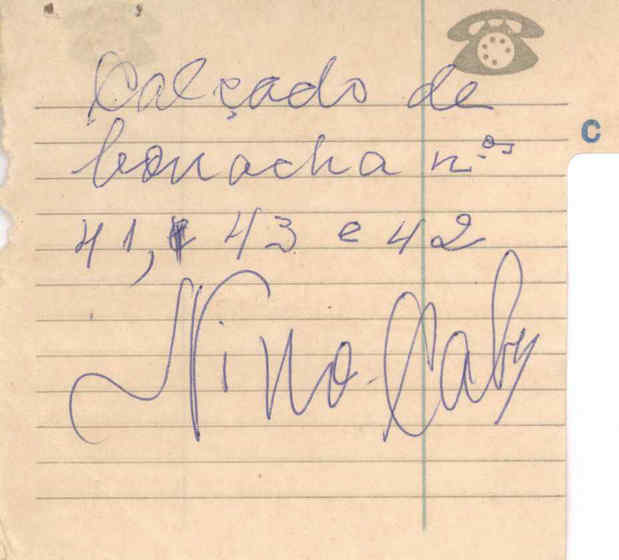 Calçado de
C
borracha n.os
41, 43 e 42
Nino Caby